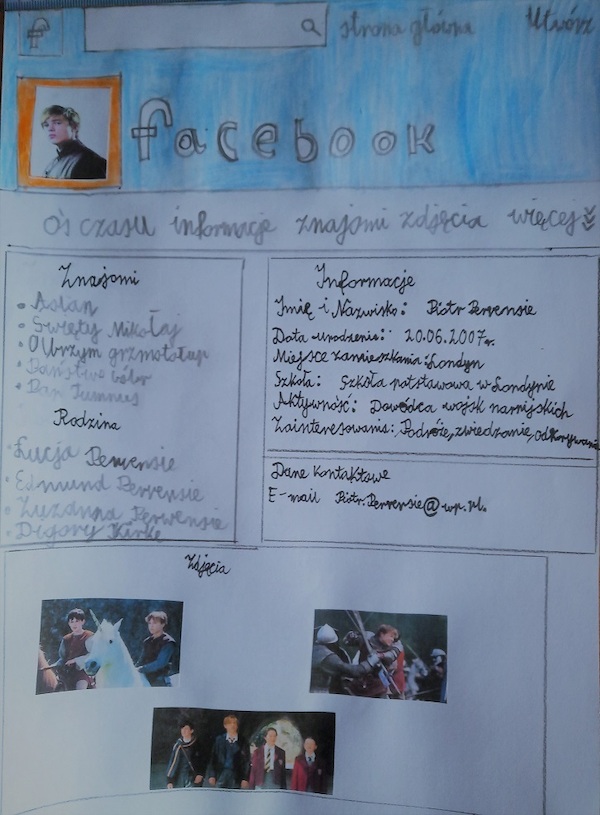 f
strona główna
Utwórz
facebook
oś czasu informacje znajomi zdjęcia więcej
Znajomi
Aslan
Święty Mikołaj
Olbrzym grzmotołup
Państwo bóbr
Pan Tumnus
Rodzina
Łucja Pevensie
Edmund Pevensie
Zuzanna Pevwensie
Digory Kirke
Informacje
Imię i Nazwisko: Piotr Pevensie
Data urodzenia: 20.06.2007r.
Miejsce zamieszkania: Londyn
Szkoła: Szkoła potstawowa w Londynie
Aktywność: Dowódca wojsk narnijskich
Zainteresowania: Podróże, zwiedzanie, odkrywanie
Dane Kontaktowe
E-mail Piotr.Pevensie@wp.pl.
Zdjęcia